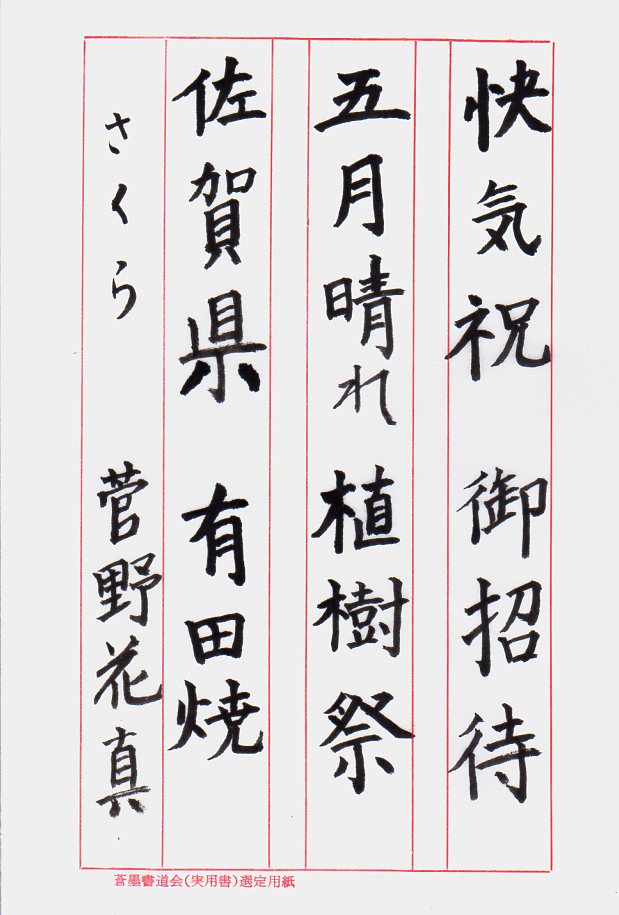 快気祝 御招待
五月晴れ 植樹祭
佐賀県 有田焼
さくら 菅野花真
蒼墨書道会(実用書)選定用紙